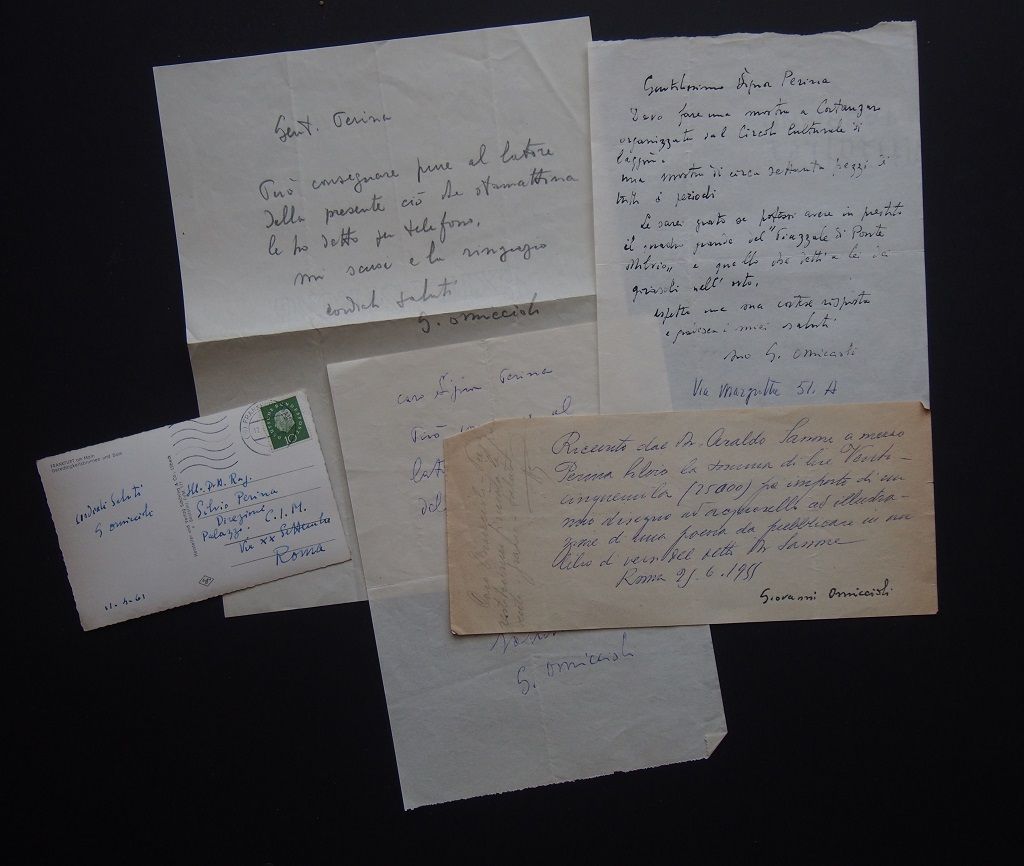 Gent. Perina
Può consegnare pure al latore
della presente ciò che stamattina
le ho detto per telefono.
mi scusi e la ringrazio
cordiali saluti
G. Omiccioli
Gentilissimo Signor Perina
Devo fare una mostra a Catanzaro
organizzata dal Circolo Culturale di
laggiù.
una mostra di circa settanta pezzi di
tutti i periodi
Le sarei grato se potessi avere in prestito
il quadro grande del "Piazzale di Ponte
Milvio" e quello che detti a lei dei
girasoli nell'orto.
aspetto una sua cortese risposta
e gradisca i miei saluti
suo G. Omiccioli
Via Margutta 51. A
caro Signor Perina
Può
G. Omiccioli
FRANKFURT am Main
cordiali saluti
G. Omiccioli
21-4-61
DEUTSCHE BUNDESPOST
10
Ill. Dott. Rag.
Silvio Perina
Direzione
Palazzo C.I.M.
Via XX Settembre
Roma
Ricevuto dal Dr. Araldo Sassone a mezzo
Perina Silvio la somma di lire Venti-
cinquemila (25000) per importo di un
mio disegno ad acquarello ad illustra-
zione di una poesia da pubblicare in un
libro di versi del detto Dr Sassone
Roma 25.6.1955
Giovanni Omiccioli